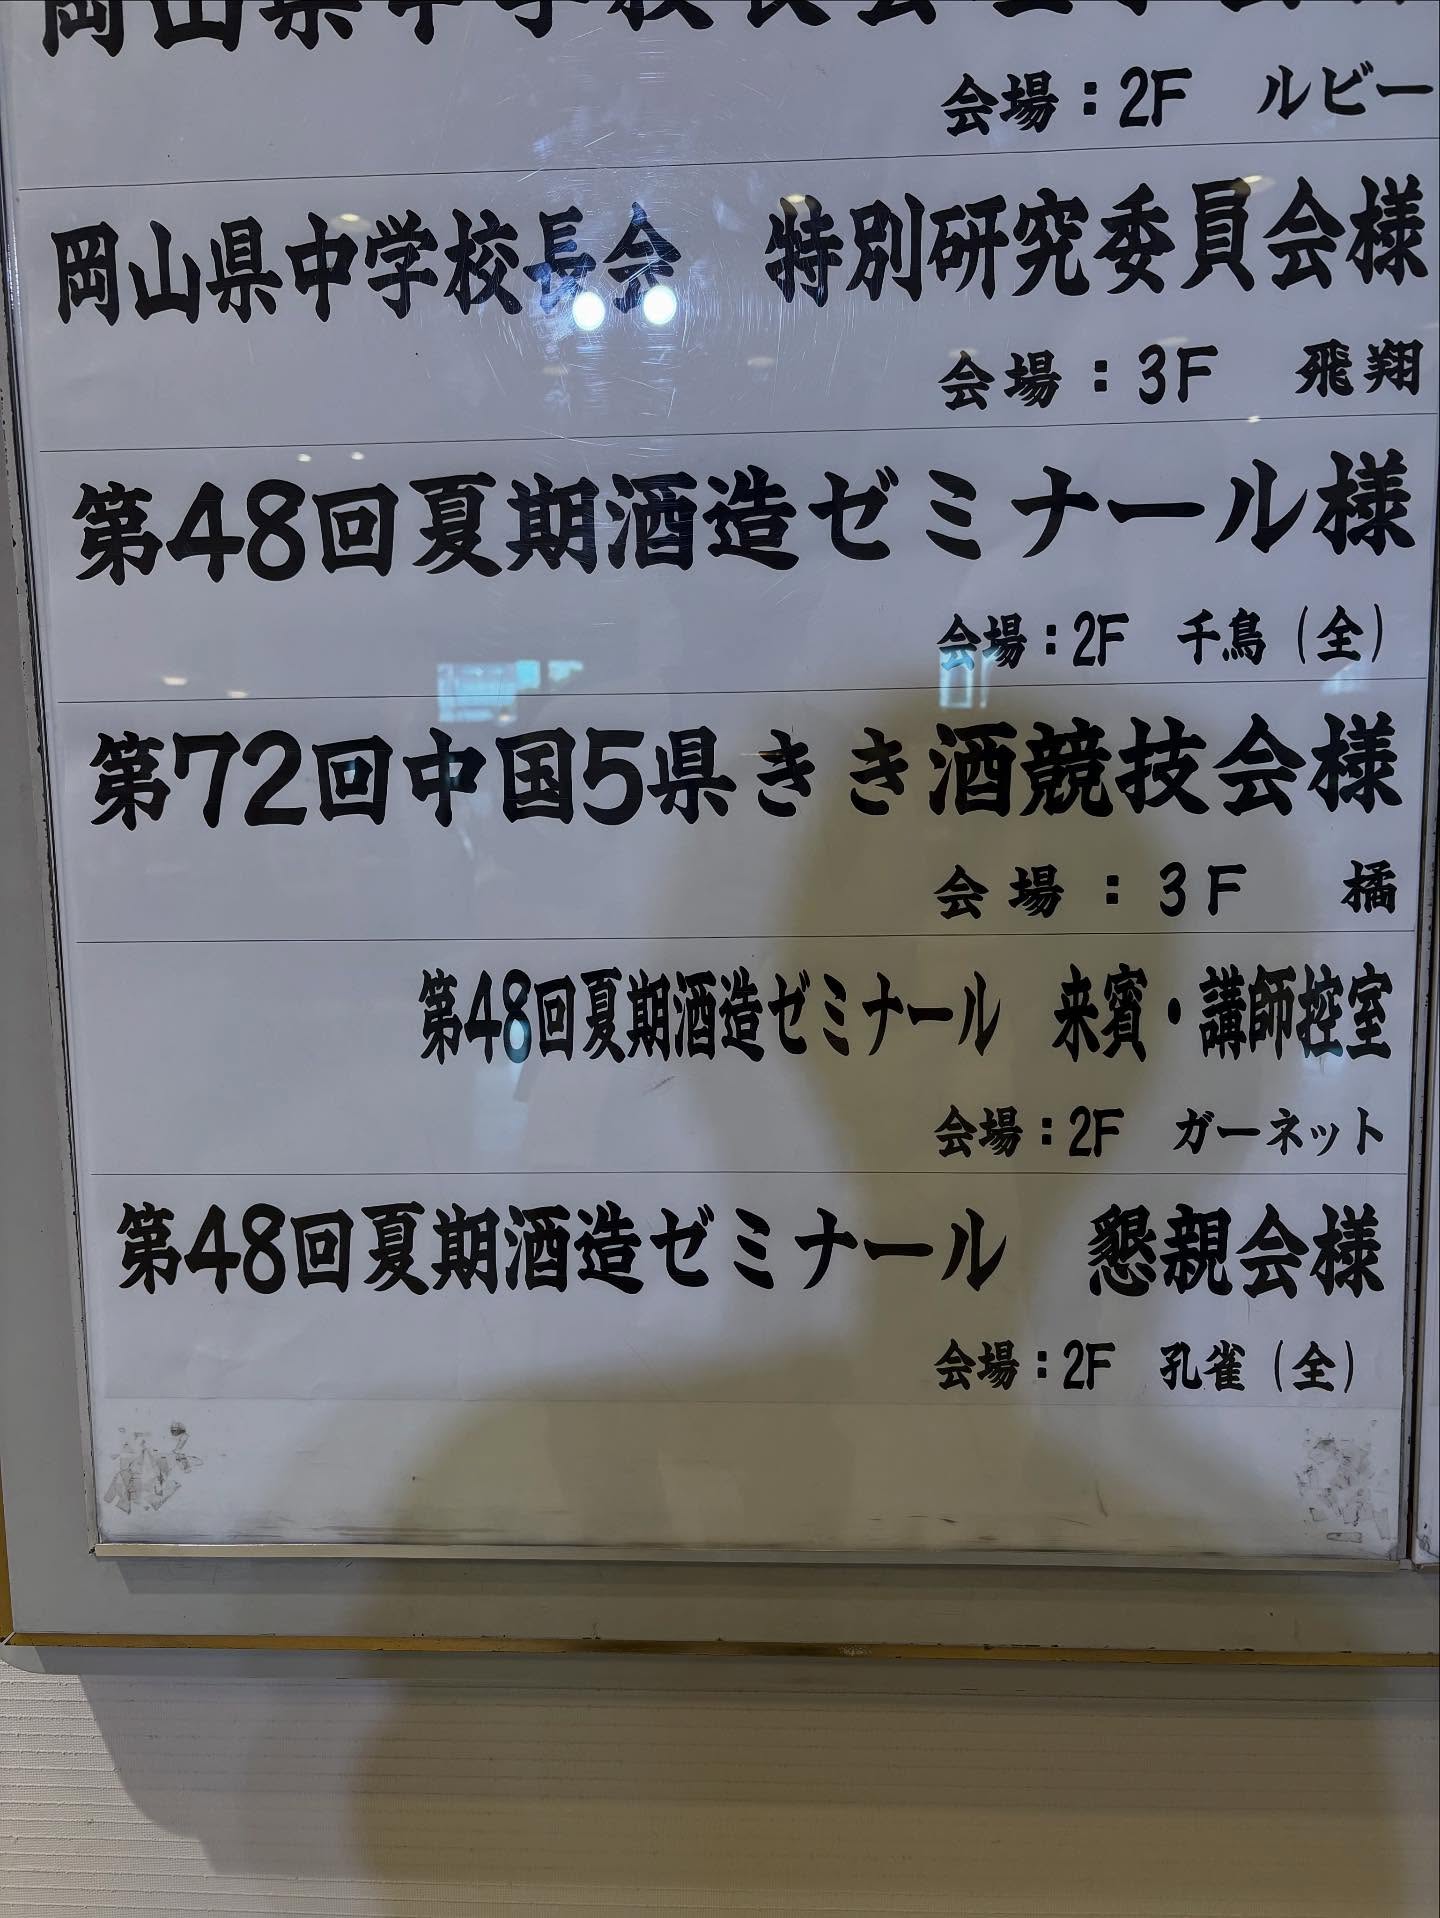 岡山県中学校長会
会場：2F　ルビー
岡山県中学校長会　特別研究委員会様
会場：3F　飛翔
第48回夏期酒造ゼミナール様
会場：2F　千鳥（全）
第72回中国5県きき酒競技会様
会場：3F　橘
第48回夏期酒造ゼミナール　来賓・講師控室
会場：2F　ガーネット
第48回夏期酒造ゼミナール　懇親会様
会場：2F　孔雀（全）